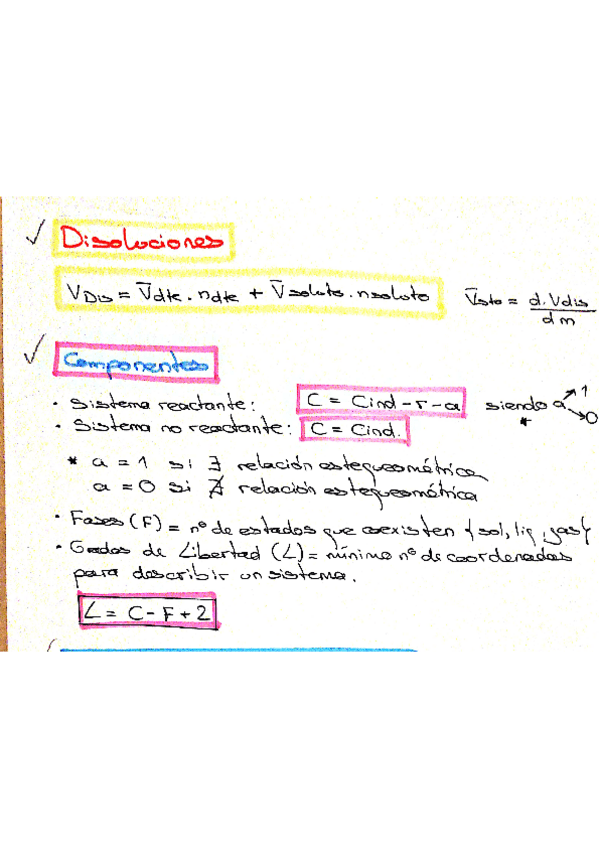 ✓ Disoluciones
V_Dis = V̄dte · ndte + V̄soluto · nsoluto   V̄sto = d·Vdis / dm
✓ Componentes
· Sistema reactante: C = Cind - r - a siendo a* ↗ 1 ↘ 0
· Sistema no reactante: C = Cind.
* a = 1 si ∃ relación estequeométrica
a = 0 si ∄ relación estequeométrica
· Fases (F) = nº de estados que coexisten {sol, liq, gas}
· Grados de Libertad (L) = mínimo nº de coordenadas
para describir un sistema.
L = C - F + 2